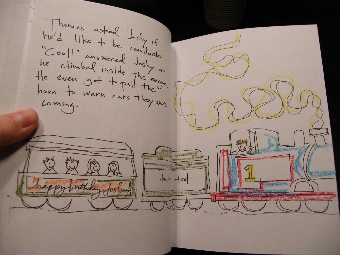 Thomas asked Joshy if
he'd like to be conductor.
"Cool!" answered Joshy as
he climbed inside the engine
He even got to pull the
horn to warn cars they were
coming.
happy birthday Joshy
1